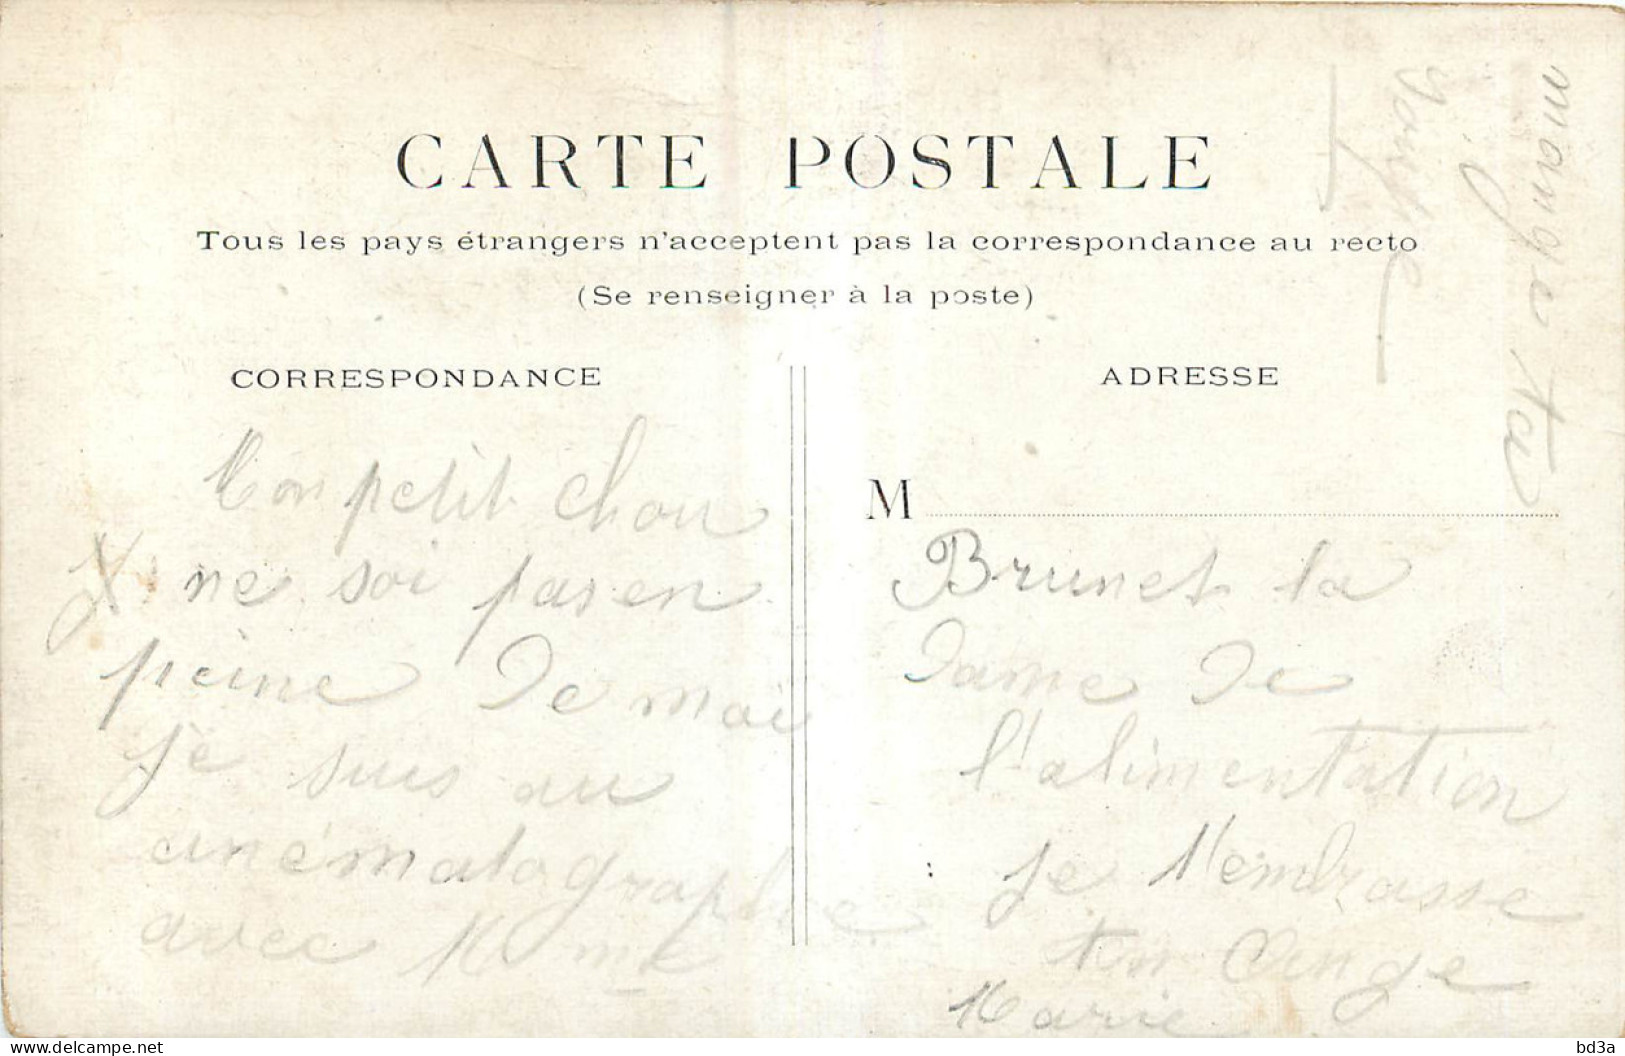 CARTE POSTALE
Tous les pays étrangers n'acceptent pas la correspondance au recto
(Se renseigner à la poste)
CORRESPONDANCE
Mon petit chou
ne soi pas en
peine de moi
je suis au
cinématographe
avec Mme
ADRESSE
M
Brunet la
dame de
l'alimentation
je t'embrasse
ton Ange
Marie
mange ta
bd3a